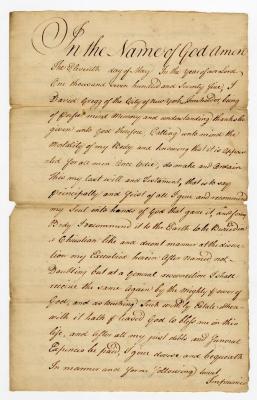 In the Name of God Amen
The Eleventh day of May In the Year of our Lord
One thousand Seven hundred and Seventy five, I
David Gregg of the City of New York, being
of perfect mind Memory and understanding thanks be
given unto God therefore Calling unto mind the
Mortality of my Body and knowing that it is Appoin
ted For all men Once to Die, do make and Ordain
This my last will and Testament, that is to say
Principally and first of all I give and recommend
my Soul into hands of God that gave it, and for my
Body I recommend it to the Earth to be Buried in
a Christian like and decent manner at the discre
tion my Executors herein After Named not
Doubting but at a General resurrection I shall
receive the same Again by the Mighty Power of
God; and as touching Such worldly Estate where
with it hath pleased God to bless me in this
life, and After all my just debts and funeral
Expences be paid, I give devise and bequeath
In manner and form following (viz)
Imprimis